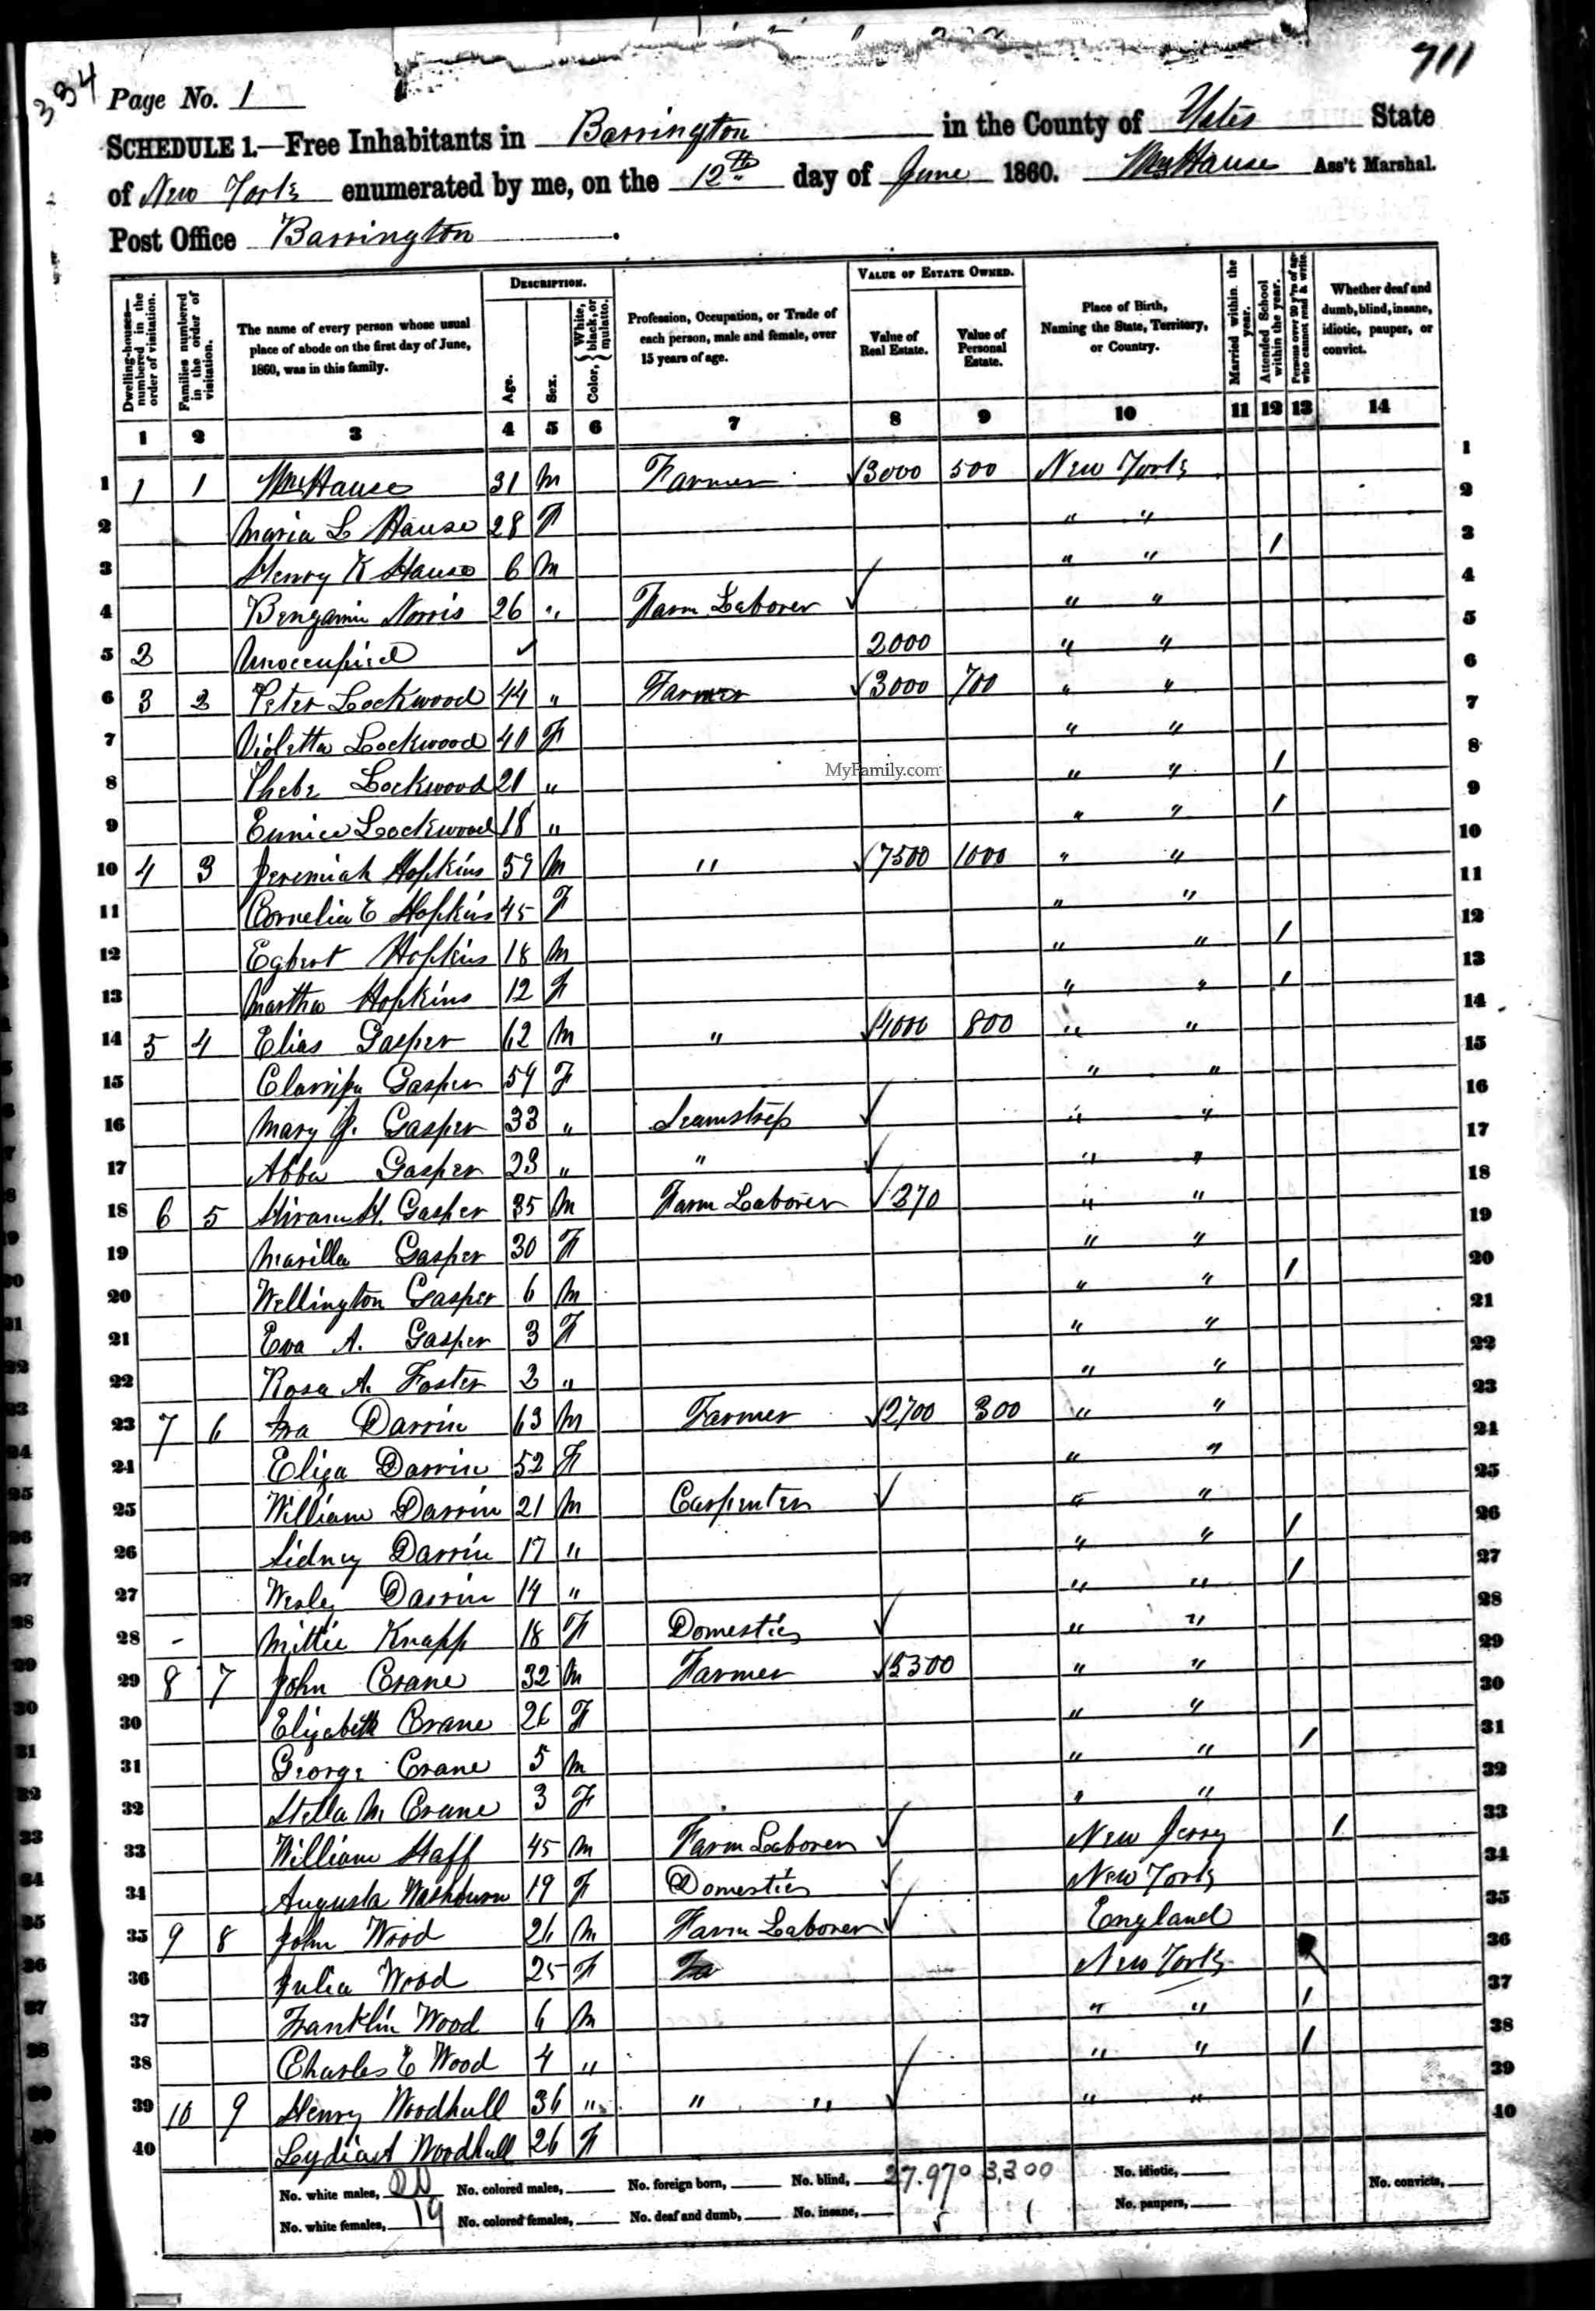 711
334
Page No. 1
SCHEDULE 1.—Free Inhabitants in Barrington in the County of Yates State
of New York enumerated by me, on the 12th day of June 1860. Wm Hause Ass't Marshal.
Post Office Barrington.
Dwelling-houses—numbered in the order of visitation.
Families numbered in the order of visitation.
The name of every person whose usual place of abode on the first day of June, 1860, was in this family.
DESCRIPTION.
Age.
Sex.
Color, { White, black, or mulatto.
Profession, Occupation, or Trade of each person, male and female, over 15 years of age.
VALUE OF ESTATE OWNED.
Value of Real Estate.
Value of Personal Estate.
Place of Birth, Naming the State, Territory, or Country.
Married within the year.
Attended School within the year.
Persons over 20 y'rs of age who cannot read & write.
Whether deaf and dumb, blind, insane, idiotic, pauper, or convict.
1 2 3 4 5 6 7 8 9 10 11 12 13 14
1 1 1 Wm Hause 31 M Farmer 3000 500 New York 1
2 Maria L Hause 28 F " " 2
3 Henry K Hause 6 M " " 1 3
4 Bengamin Norris 26 " Farm Laborer " " 4
5 2 Unoccupied 2000 " " 5
6 3 2 Peter Lockwood 44 " Farmer 3000 700 " " 6
7 Violetta Lockwood 40 F " " 7
8 Phebe Lockwood 21 " " " 1 8
MyFamily.com
9 Eunice Lockwood 18 " " " 1 9
10 4 3 Jeremiah Hopkins 59 M " 7500 1000 " " 10
11 Cornelia E Hopkins 45 F " " 11
12 Egbert Hopkins 18 M " " 1 12
13 Martha Hopkins 12 F " " 1 13
14 5 4 Elias Gasper 62 M " 4000 800 " " 14
15 Clarissa Gasper 59 F " " 15
16 Mary J. Gasper 33 " Seamstress " " 16
17 Abba Gasper 23 " " " " 17
18 6 5 Hiram H. Gasper 35 M Farm Laborer 370 " " 18
19 Marilla Gasper 30 F " " 19
20 Wellington Gasper 6 M " " 1 20
21 Eva A. Gasper 3 F " " 21
22 Rosa A. Foster 2 " " " 22
23 7 6 Ira Darrin 63 M Farmer 2700 300 " " 23
24 Eliza Darrin 52 F " " 24
25 William Darrin 21 M Carpenter " " 25
26 Sidney Darrin 17 " " " 1 26
27 Wesley Darrin 14 " " " 1 27
28 - Mittie Knapp 18 F Domestic " " 28
29 8 7 John Crane 32 M Farmer 5300 " " 29
30 Elizabeth Crane 26 F " " 30
31 George Crane 5 M " " 1 31
32 Stella M Crane 3 F " " 32
33 William Haff 45 M Farm Laborer New Jersy 1 33
34 Augusta Washburn 19 F Domestic New York 34
35 9 8 John Wood 26 M Farm Laborer England 35
36 Julia Wood 25 F Fa New York 36
37 Franklin Wood 6 M " " 1 37
38 Charles E Wood 4 " " " 1 38
39 10 9 Henry Woodhull 36 " " " " " 39
40 Woodhull 26 F 40
No. white males, No. colored males, No. foreign born, No. blind, 27.970 3,300 No. idiotic, No. convicts,
No. white females, 19 No. colored females, No. deaf and dumb, No. insane, No. paupers,